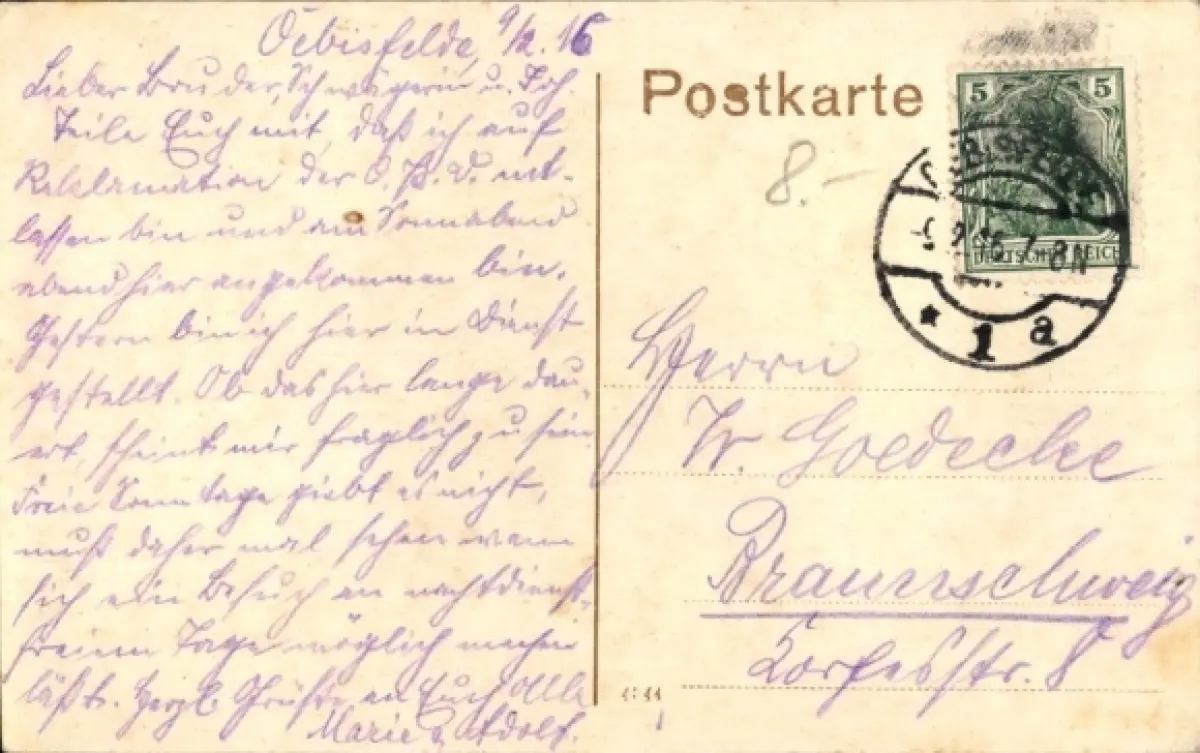 Oebisfelde, 9/2. 16
Lieber Bruder, Schwägerin u. Joh.
Teile Euch mit, daß ich auf
Reklamation der E. B. V. ent-
lassen bin und am Sonnabend
abend hier angekommen bin.
Gestern bin ich hier in Dienst
gestellt. Ob das hier lange dau-
ert, scheint mir fraglich zu sein.
Freie Sonntage giebt es nicht,
muß daher mal sehen wenn
sich ein Besuch an nachtdienst-
freiem Tage möglich machen
läßt. Herzl. Grüße an Euch Alle
Marie u. Adolf.
Postkarte
8.-
5 5
DEUTSCHES REICH
OEBISFELDE
9.2.16.7-8N
* 1 a
Herrn
W. Goedecke
Braunschweig
str. 8